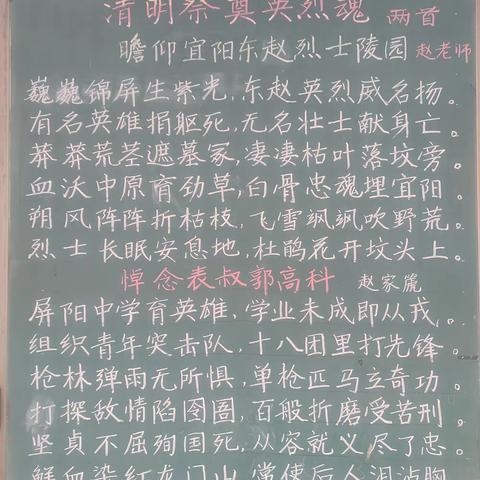 清明祭奠英烈魂 两首
瞻仰宜阳东赵烈士陵园 赵老师
巍巍锦屏生紫光，东赵英烈威名扬。
有名英雄捐躯死，无名壮士献身亡。
莽莽荒茎遮墓冢，凄凄枯叶落坟旁。
血沃中原育劲草，白骨忠魂埋宜阳。
朔风阵阵折枯枝，飞雪飒飒吹野荒。
烈士长眠安息地，杜鹃花开坟头上。
悼念表叔郭高科 赵家麓
屏阳中学育英雄，学业未成即从戎。
组织青年突击队，十八团里打先锋。
枪林弹雨无所惧，单枪匹马立奇功。
打探敌情陷囹圄，百般折磨受苦刑。
坚贞不屈殉国死，从容就义尽了忠。
鲜血染红龙门山，常使后人泪沾胸